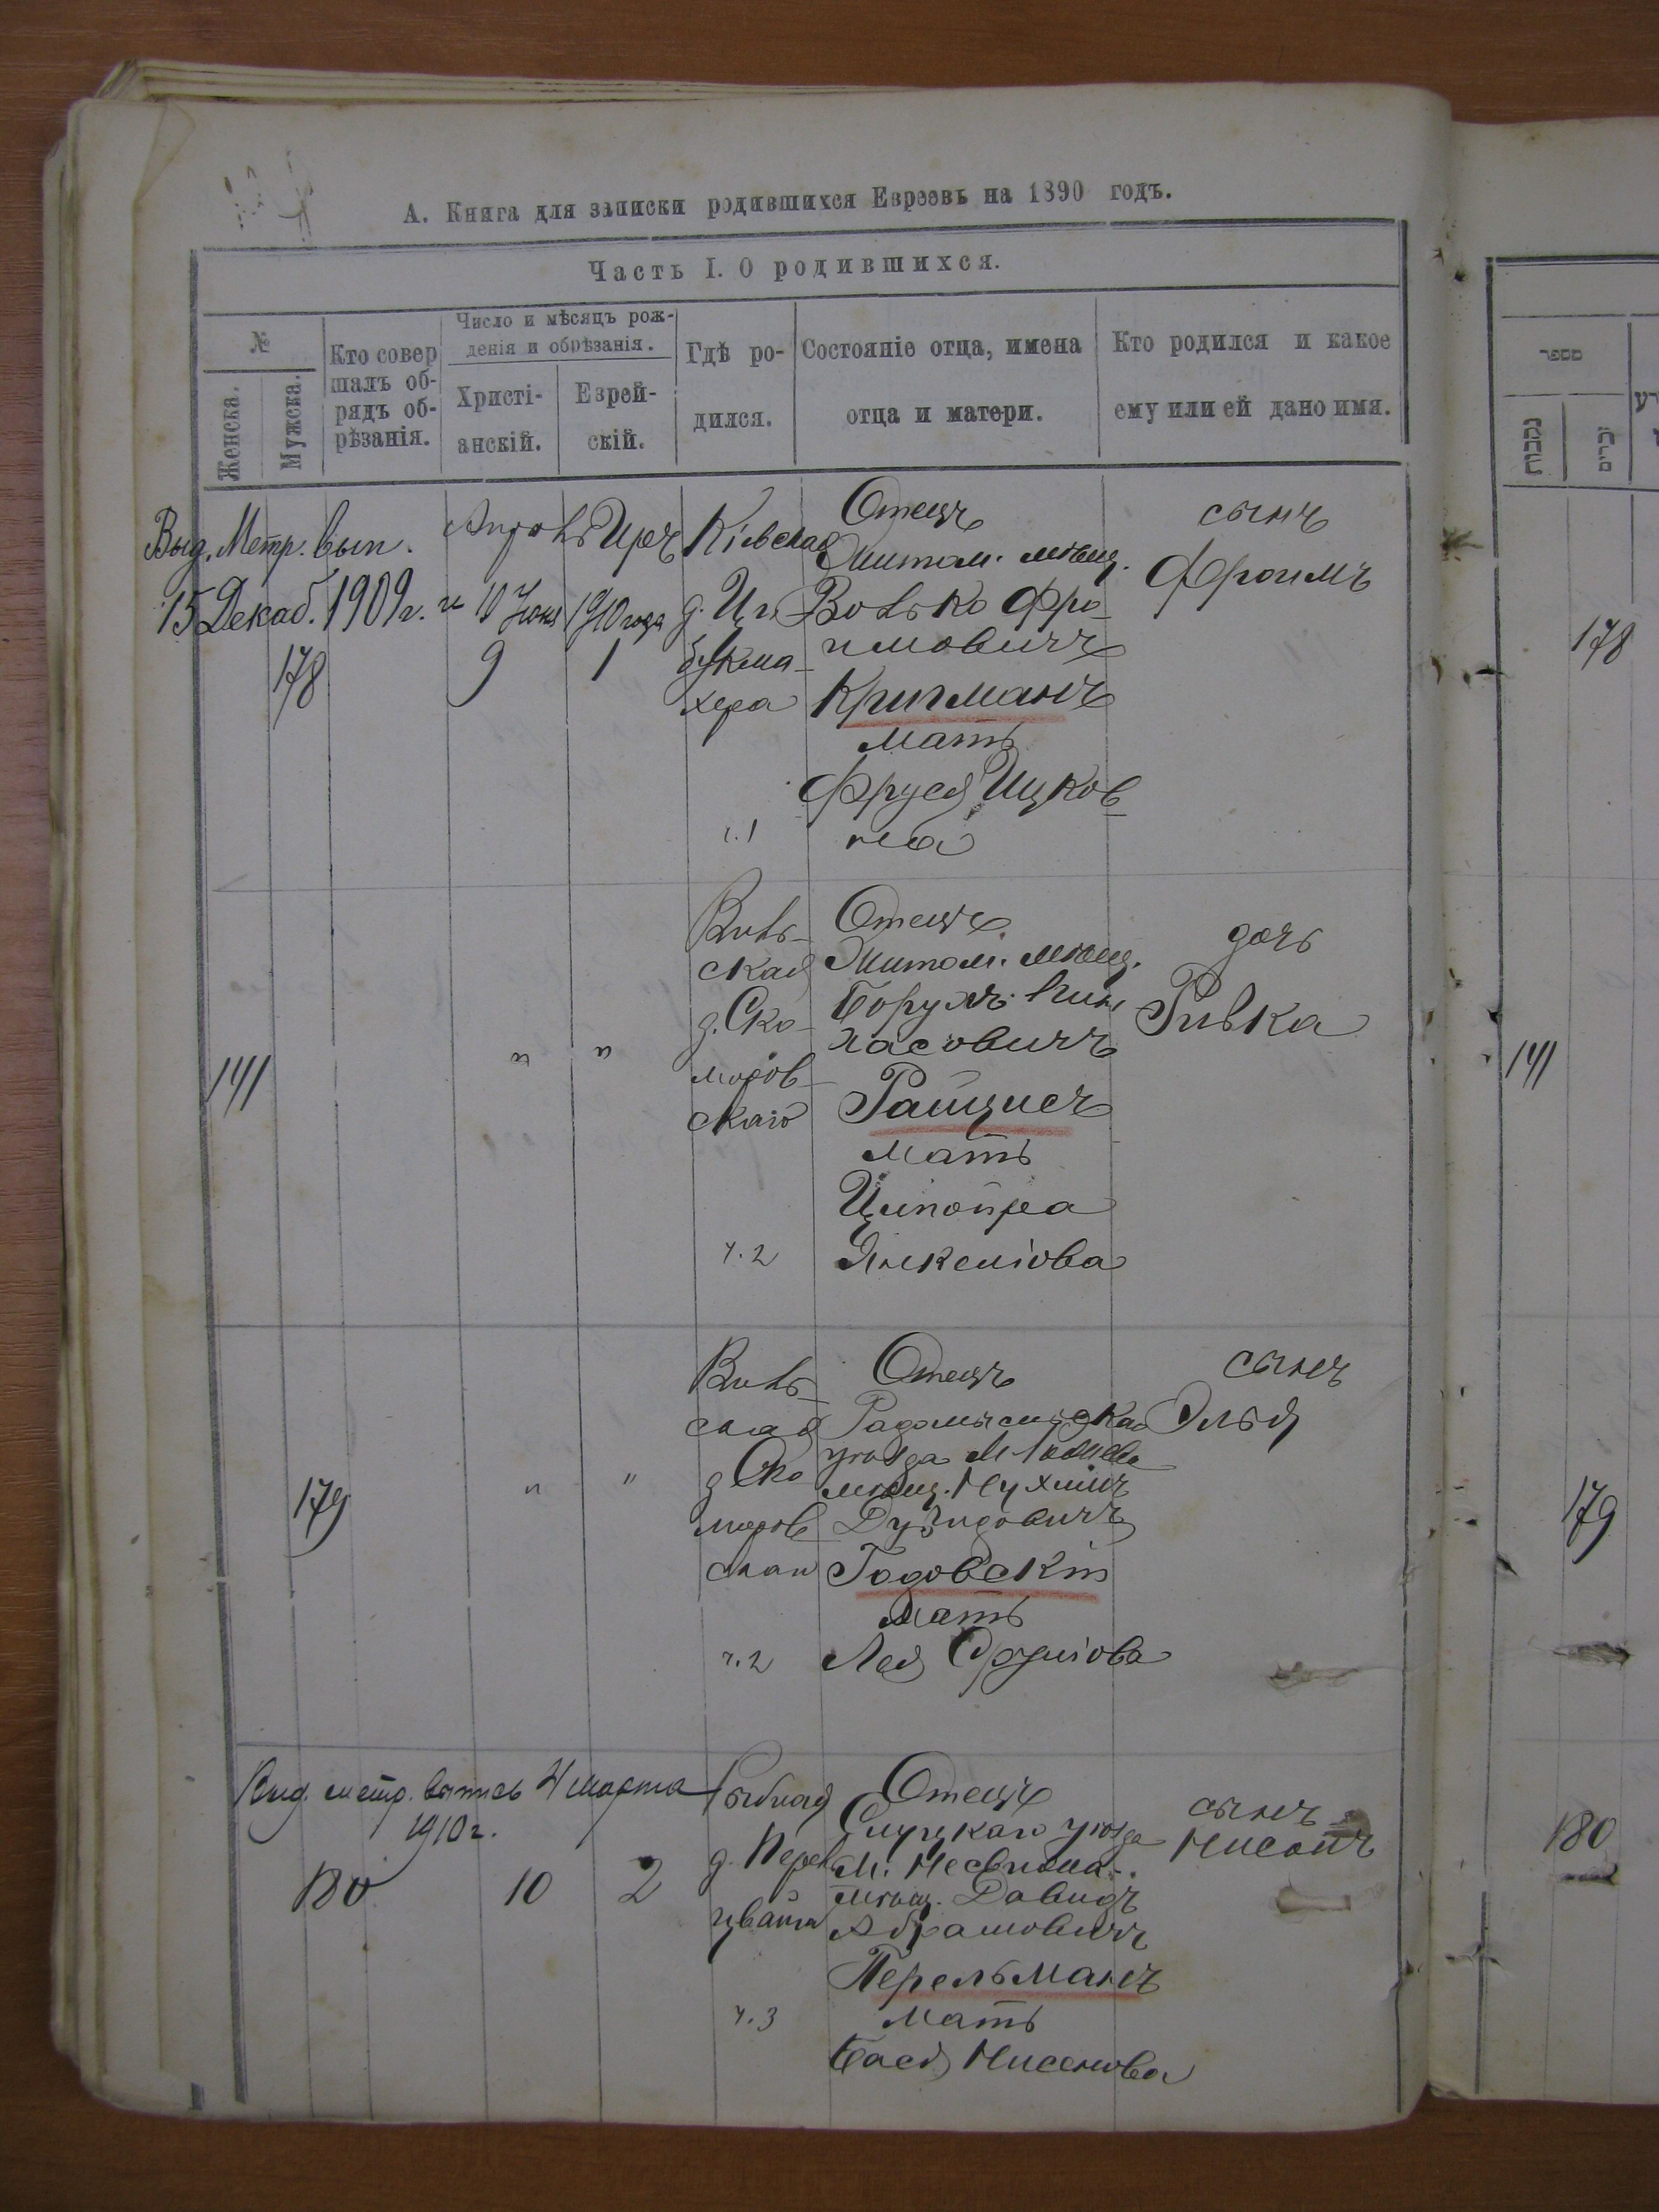 А. Книга для записки родившихся Евреевъ на 1890 годъ.
Часть I. О родившихся.
№
Женска.
Мужска.
Кто совер
шалъ об-
рядъ об-
рѣзанія.
Число и мѣсяцъ рож-
денія и обрѣзанія.
Христі-
анскій.
Еврей-
скій.
Гдѣ ро-
дился.
Состояніе отца, имена
отца и матери.
Кто родился и какое
ему или ей дано имя.
Выд. Метр. вып.
15 Декаб. 1909г. и 10 Іюня 1910 года
178
Апрѣль
9
Иръ
1
Кіевская
д. Ци
букма-
хера
ч.1
Отецъ
Житом. мѣщ.
Волько Фро-
имовичъ
Кригманъ
мать
Фруся Ицков-
на
сынъ
Фроимъ
141
"
"
Виль-
ская
д. Ско-
моров-
скаго
ч.2
Отецъ
Житом. мѣщ.
Борухъ Пин
хасовичъ
Райцисъ
мать
Ципойра
Янкелiова
дочь
Ривка
179
"
"
Виль-
ская
д. Ско
моров
скаго
ч.2
Отецъ
Радомысльскаго
уѣзда М.
мѣщ. Нухимъ
Дувидовичъ
Годовскій
мать
Лея Сруліова
сынъ
Элья
Выд. метр. выпись 4 марта
1910 г.
180
10
2
Рыбная
д. Перел
цвайга
ч.3
Отецъ
Слуцкаго уѣзда
М. Несвижа
мѣщ. Давидъ
Абрамовичъ
Перельманъ
мать
Бася Нисенова
сынъ
Нисонъ
מספר
נקבות
זכרים
178
141
179
180